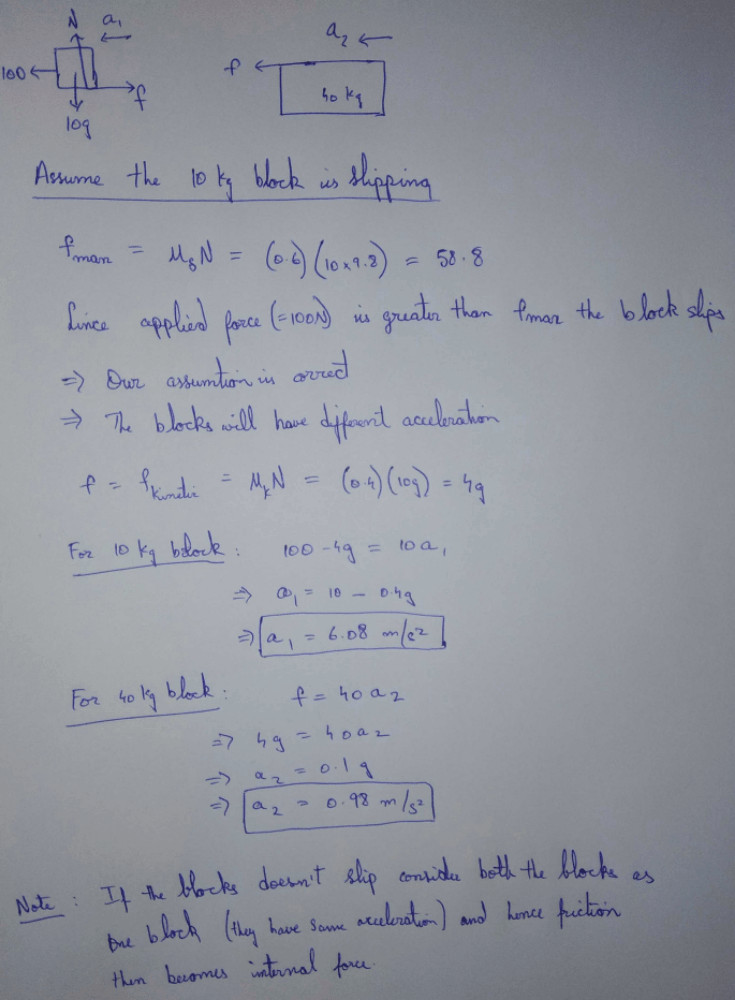 N a₁
a₂
100 f
f
40 kg
10g
Assume the 10 kg block is slipping
fmax = μₛN = (0.6) (10×9.8) = 58.8
Since applied force (=100N) is greater than fmax the block slips
⇒ Our assumtion is correct
⇒ The blocks will have different acceleration
f = fkinetic = μₖN = (0.4)(10g) = 4g
For 10 kg block : 100 - 4g = 10a₁
⇒ a₁ = 10 - 0.4g
⇒ a₁ = 6.08 m/s²
For 40 kg block : f = 40a₂
⇒ 4g = 40a₂
⇒ a₂ = 0.1g
⇒ a₂ = 0.98 m/s²
Note : If the blocks doesn't slip consider both the blocks as
one block (they have same acceleration) and hence friction
then becomes internal force.